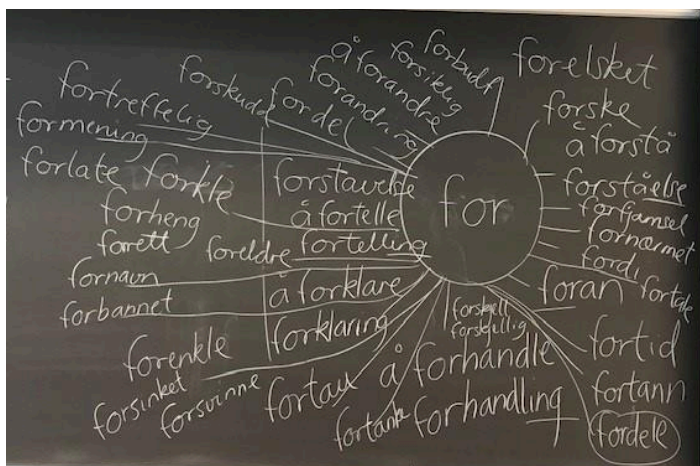 forbudt
forsiktig
å forandre
forandring
forskudd
fordel
fortreffelig
formening
forlate
forkle
forheng
forett
fornavn
forbannet
forenkle
forsinket
forsvinne
forstavelse
å fortelle
foreldre
fortelling
å forklare
forklaring
fortau
å forhandle
forhandling
for
forskjell
forskjellig
forelsket
forske
å forstå
forståelse
forfjamset
fornærmet
fordi
foran
fortale
fortid
fortann
fordele